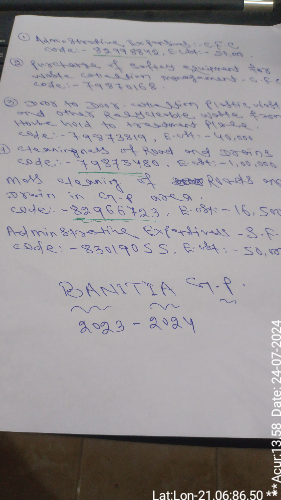 ① Administrative Expenditure :- C.F.C
code :- 82998842, E.cost :- 21.00
② Purchase of Safety equipment for
waste collection management - C.F.C
code :- 79870168.
③ Door to Door collection Plastic waste
and other Recycleable waste from
House hold to treatment Place
code :- 79873819, E.cst :- 40,000
cleaningness of Road and Drains
code :- 79873480. E.cst :- 1,00,000
Mass cleaning of Roads and
Drain in G.P area.
code :- 82966723. E.cst :- 16,500
Administrative Expenditures - S.F.
code :- 83019055. E.cst :- 50,00
BANITIA G.P.
2023 - 2024
Lat:Lon-21.06:86.50
**Acur:13.58 Date: 24-07-2024